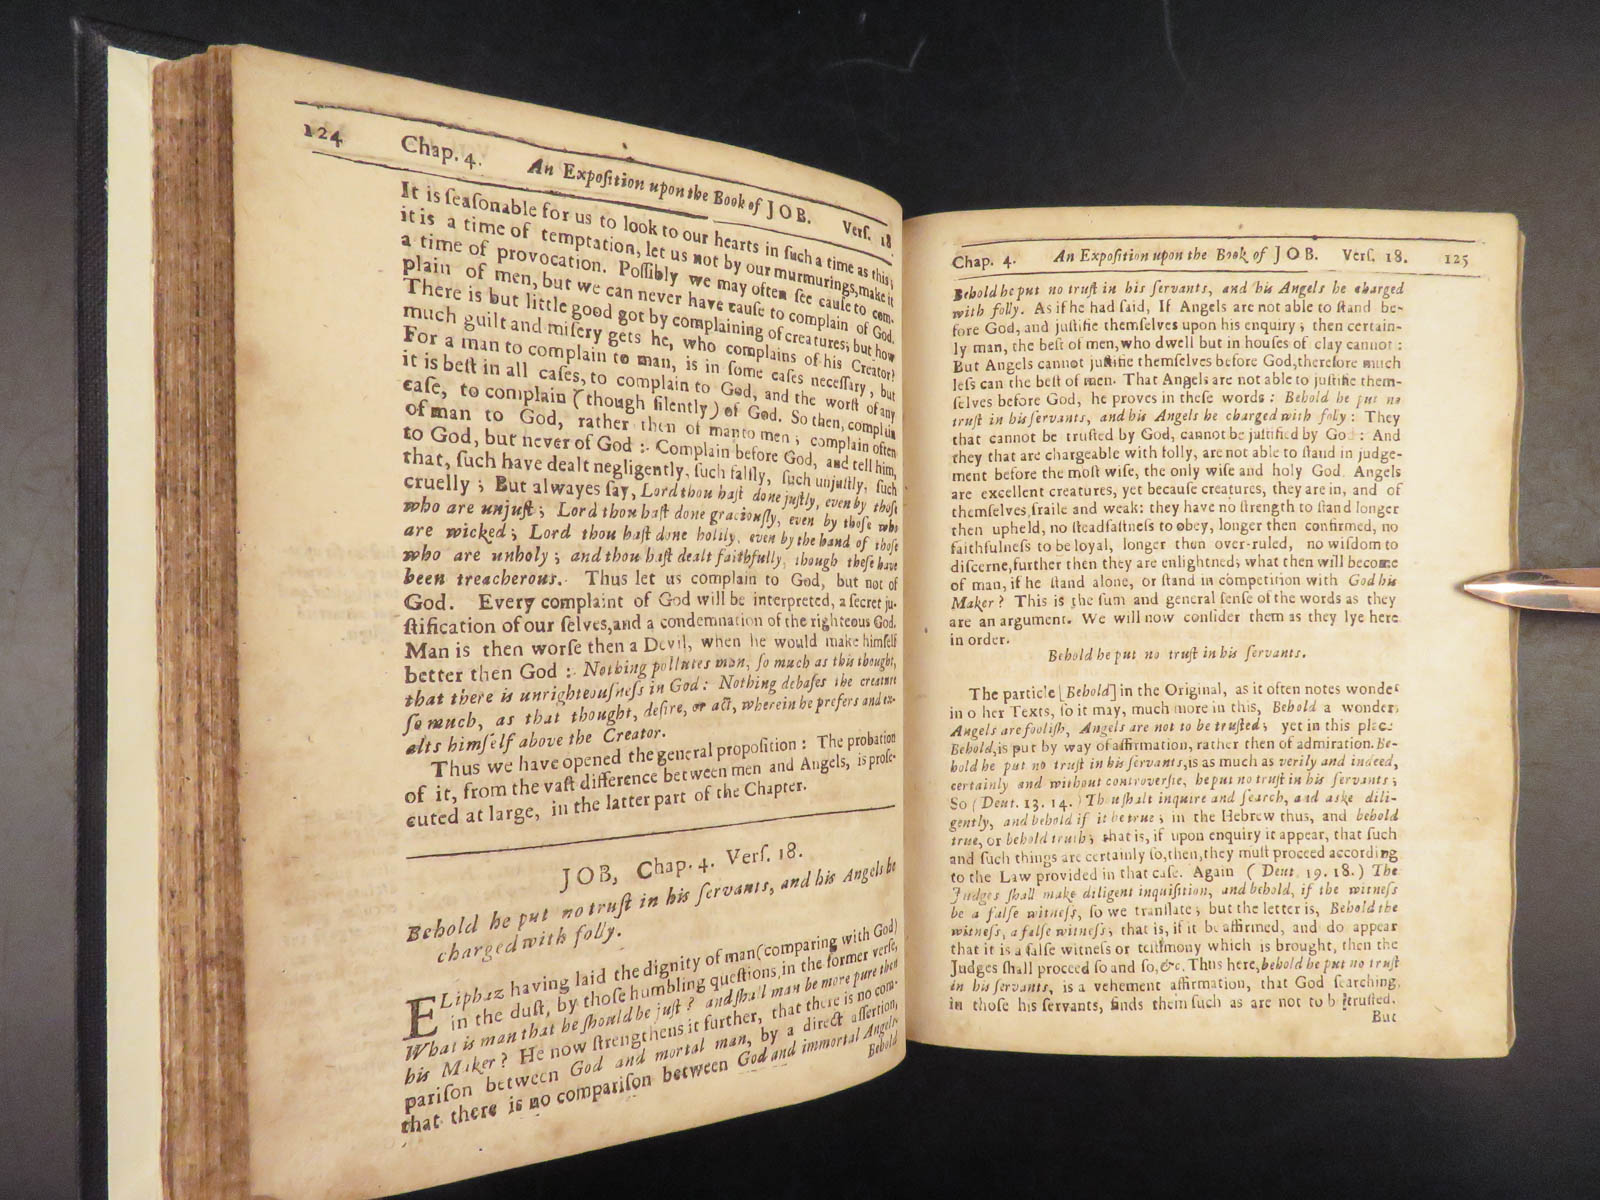 124 Chap. 4. An Expoſition upon the Book of JOB. Verſ. 18
It is ſeaſonable for us to look to our hearts in ſuch a time as this;
it is a time of temptation, let us not by our murmurings, make it
a time of provocation. Poſſibly we may often ſee cauſe to com-
plain of men, but we can never have cauſe to complain of God.
There is but little good got by complaining of creatures; but how
much guilt and miſery gets he, who complains of his Creator?
For a man to complain to man, is in ſome caſes neceſſary, but
it is beſt in all caſes, to complain to God, and the worſt of any
caſe, to complain (though ſilently) of God. So then, complain
of man to God, rather then of man to men; complain often
to God, but never of God: Complain before God, and tell him,
that, ſuch have dealt negligently, ſuch falſly, ſuch unjuſtly, ſuch
cruelly; But alwayes ſay, Lord thou haſt done juſtly, even by thoſe
who are unjuſt; Lord thou haſt done graciouſly, even by thoſe who
are wicked; Lord thou haſt done holily, even by the hand of thoſe
who are unholy; and thou haſt dealt faithfully, though theſe have
been treacherous. Thus let us complain to God, but not of
God. Every complaint of God will be interpreted, a ſecret ju-
ſtification of our ſelves, and a condemnation of the righteous God.
Man is then worſe then a Devil, when he would make himſelf
better then God: Nothing pollutes man, ſo much as this thought,
that there is unrighteouſneſs in God: Nothing debaſes the creature
ſo much, as that thought, deſire, or act, wherein he prefers and ex-
alts himſelf above the Creator.
Thus we have opened the general propoſition: The probation
of it, from the vaſt difference between men and Angels, is proſe-
cuted at large, in the latter part of the Chapter.
JOB, Chap. 4. Verſ. 18.
Behold he put no truſt in his ſervants, and his Angels he
charged with folly.
ELiphaz having laid the dignity of man (comparing with God)
in the duſt, by thoſe humbling queſtions, in the former verſe,
What is man that he ſhould be juſt? and ſhall man be more pure then
his Maker? He now ſtrengthens it further, that there is no com-
pariſon between God and mortal man, by a direct aſſertion,
that there is no compariſon between God and immortal Angels.
Behold
Chap. 4. An Expoſition upon the Book of JOB. Verſ. 18. 125
Behold he put no truſt in his ſervants, and his Angels he charged
with folly. As if he had ſaid, If Angels are not able to ſtand be-
fore God, and juſtifie themſelves upon his enquiry; then certain-
ly man, the beſt of men, who dwell but in houſes of clay cannot:
But Angels cannot juſtifie themſelves before God, therefore much
leſs can the beſt of men. That Angels are not able to juſtifie them-
ſelves before God, he proves in theſe words: Behold he put no
truſt in his ſervants, and his Angels he charged with folly: They
that cannot be truſted by God, cannot be juſtified by God: And
they that are chargeable with folly, are not able to ſtand in judge-
ment before the moſt wiſe, the only wiſe and holy God. Angels
are excellent creatures, yet becauſe creatures, they are in, and of
themſelves fraile and weak: they have no ſtrength to ſtand longer
then upheld, no ſteadfaſtneſs to obey, longer then confirmed, no
faithfulneſs to be loyal, longer then over-ruled, no wiſdom to
diſcerne, further then they are enlightned; what then will become
of man, if he ſtand alone, or ſtand in competition with God his
Maker? This is the ſum and general ſenſe of the words as they
are an argument. We will now conſider them as they lye here
in order.
Behold he put no truſt in his ſervants.
The particle [Behold] in the Original, as it often notes wonder
in other Texts, ſo it may, much more in this, Behold a wonder,
Angels are fooliſh, Angels are not to be truſted; yet in this place
Behold, is put by way of affirmation, rather then of admiration. Be-
hold he put no truſt in his ſervants, is as much as verily and indeed,
certainly and without controverſie, he put no truſt in his ſervants;
So (Deut. 13. 14.) Thou ſhalt inquire and ſearch, and aske dili-
gently, and behold if it be true; in the Hebrew thus, and behold
true, or behold truth; that is, if upon enquiry it appear, that ſuch
and ſuch things are certainly ſo, then, they muſt proceed according
to the Law provided in that caſe. Again (Deut 19. 18.) The
Judges ſhall make diligent inquiſition, and behold, if the witneſs
be a falſe witneſs, ſo we tranſlate; but the letter is, Behold the
witneſs, a falſe witneſs; that is, if it be affirmed, and do appear
that it is a falſe witneſs or teſtimony which is brought, then the
Judges ſhall proceed ſo and ſo, &c. Thus here, behold he put no truſt
in his ſervants, is a vehement affirmation, that God ſearching
in thoſe his ſervants, finds them ſuch as are not to b truſted.
But